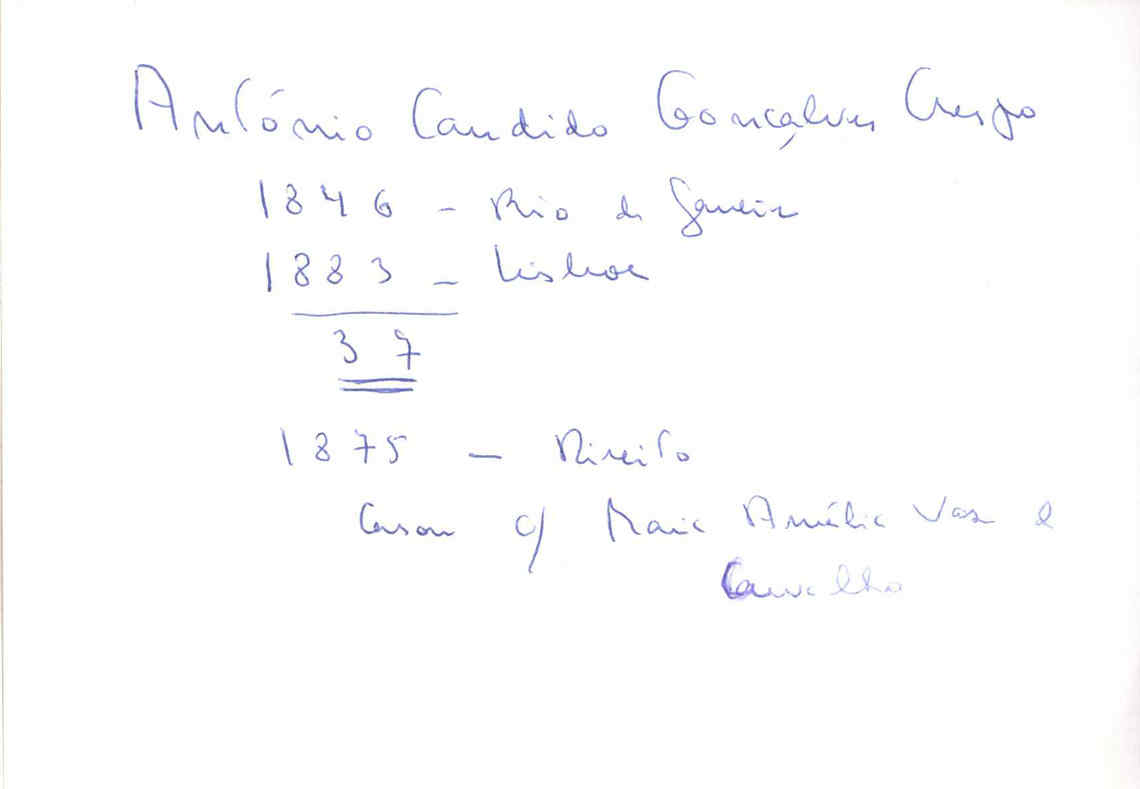 António Candido Gonçalves Crespo
1846 - Rio de Janeiro
1883 - Lisboa
37
1875 - Direito
Casou c/ Maria Amélia Vaz de
Carvalho